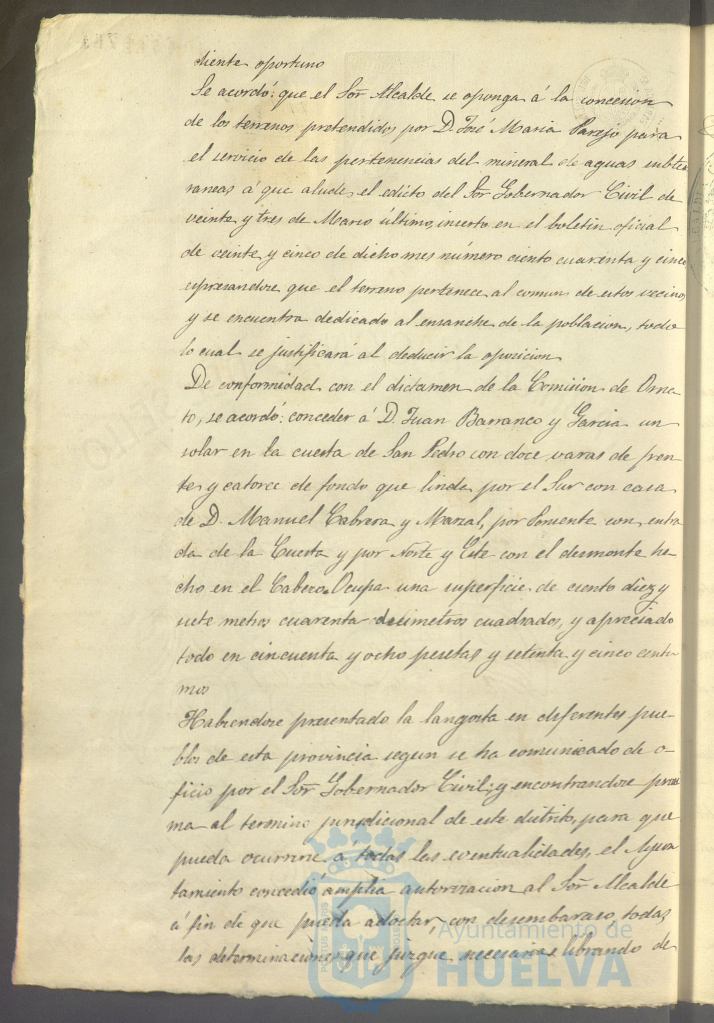 diente oportuno
Se acordó: que el Sor Alcalde se oponga á la concesion
de los terrenos pretendidos por D. José Maria Parejo para
el servicio de las pertenencias del mineral de aguas subter
raneas á que alude el edicto del Sor Gobernador Civil de
veinte y tres de Marzo último, inserto en el boletin oficial
de veinte y cinco de dicho mes número ciento cuarenta y cinco
espresandose que el terreno pertenece al comun de estos vecinos
y se encuentra dedicado al ensanche de la poblacion, todo
lo cual se justificará al deducir la oposicion
De conformidad con el dictamen de la Comision de Orna-
to, se acordó: conceder á D. Juan Barranco y Garcia un
solar en la cuesta de San Pedro con doce varas de fren-
te y catorce de fondo que linda por el Sur con casa
de D. Manuel Cabrera y Marzal, por Poniente con entra
da de la Cuesta y por Norte y Este con el desmonte he-
cho en el Cabezo. Ocupa una superficie de ciento diez y
siete metros cuarenta desimetros cuadrados, y apreciado
todo en cincuenta y ocho pesetas y setenta y cinco centi
mos
Habiendose presentado la langosta en diferentes pue-
blos de esta provincia segun se ha comunicado de o-
ficio por el Sor Gobernador Civil; y encontrandose proxi
ma al termino jurisdicional de este distrito, para que
pueda ocurrirse á todas las eventualidades, el Ayun
tamiento concedió amplia autorizacion al Sor Alcalde
á fin de que pueda adoctar con desembarazo, todas
las determinaciones que juzgue necesarias librando de
Ayuntamiento de
HUELVA